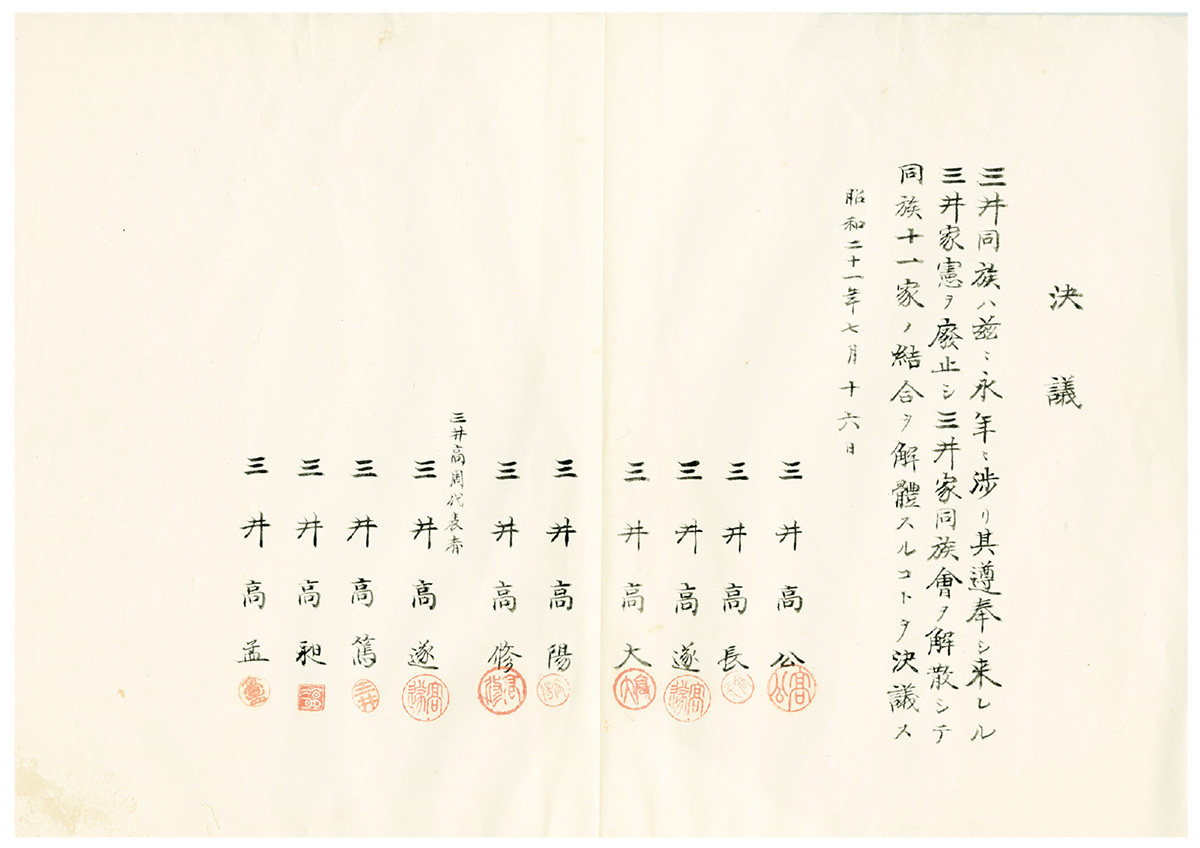 決議
三井同族ハ茲ニ永年ニ渉リ其遵奉シ来レル
三井家憲ヲ廢止シ三井家同族會ヲ解散シテ
同族十一家ノ結合ヲ解體スルコトヲ決議ス
昭和二十一年七月十六日
三井高公
三井高長
三井高遂
三井高大
三井高陽
三井高修
三井高周代表者
三井高遂
三井高篤
三井高昶
三井高孟